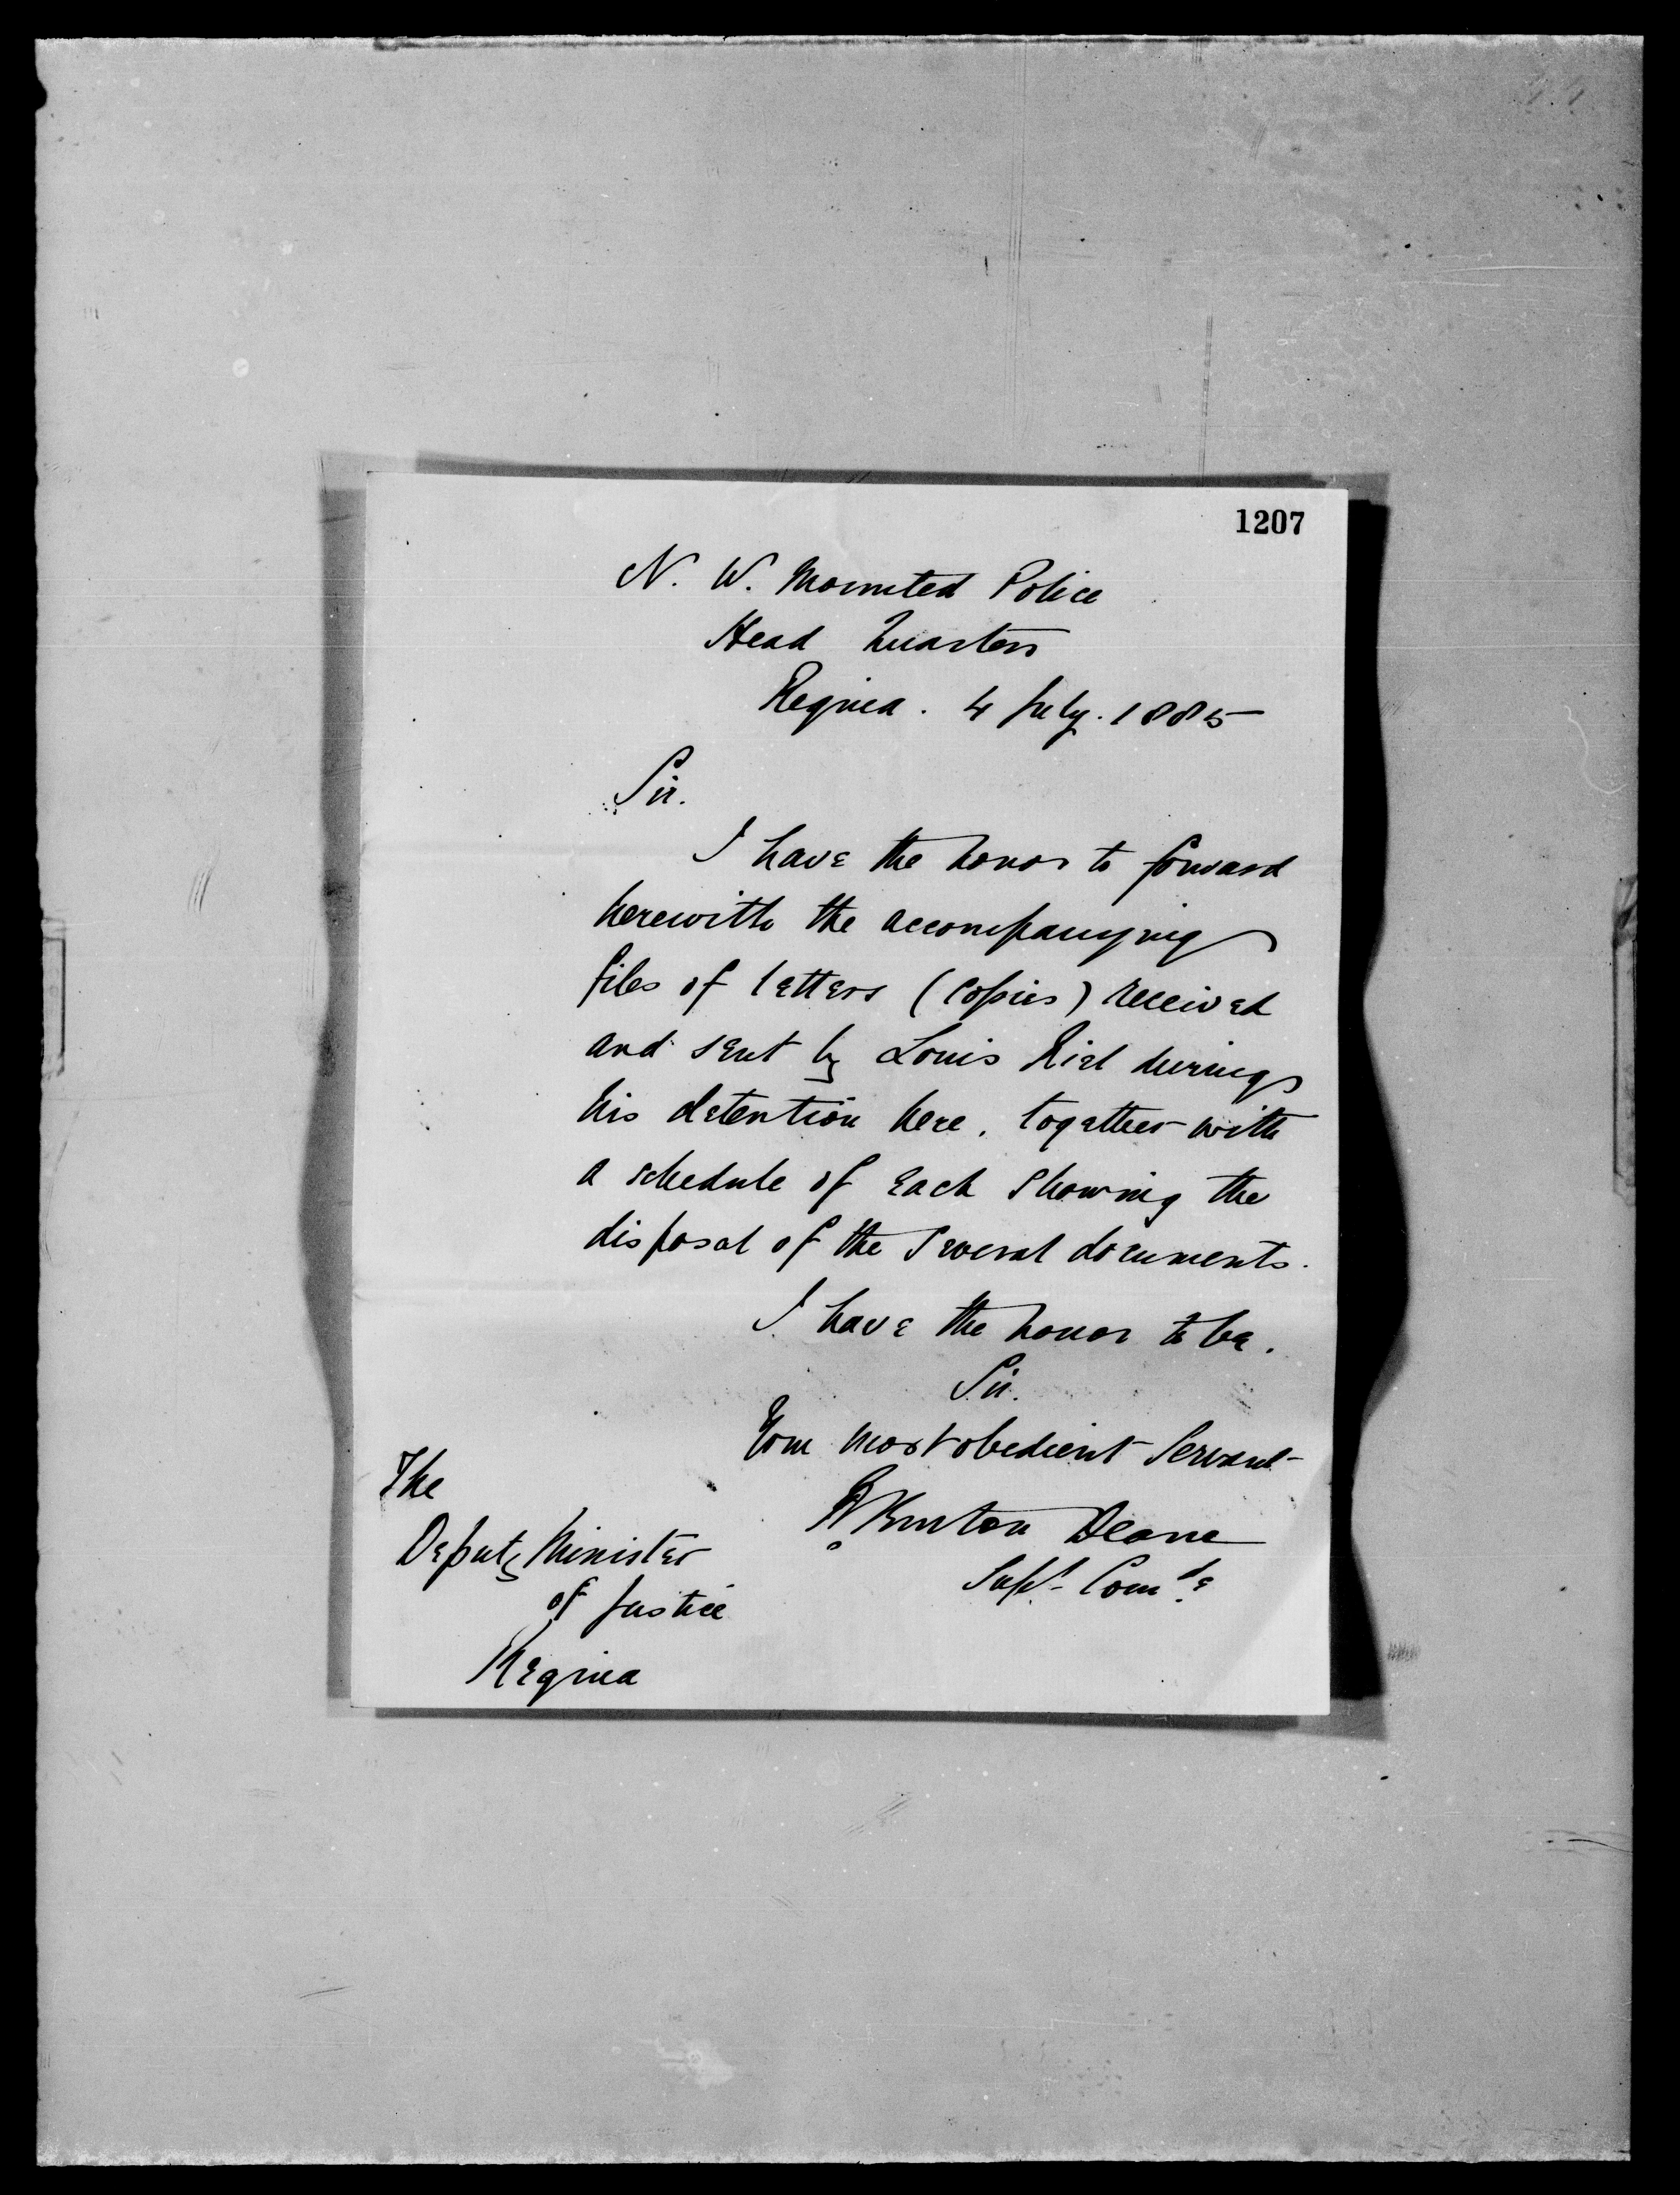 1207
N. W. Mounted Police
Head Quarters
Regina. 4 July. 1885
Sir.
I have the honor to forward
herewith the accompanying
files of letters (copies) received
and sent by Louis Riel during
his detention here, together with
a schedule of each showing the
disposal of the several documents.
I have the honor to be.
Sir.
Your most obedient Servant
R Burton Deane
Supt. Comdg
The
Deputy Minister
of Justice
Regina